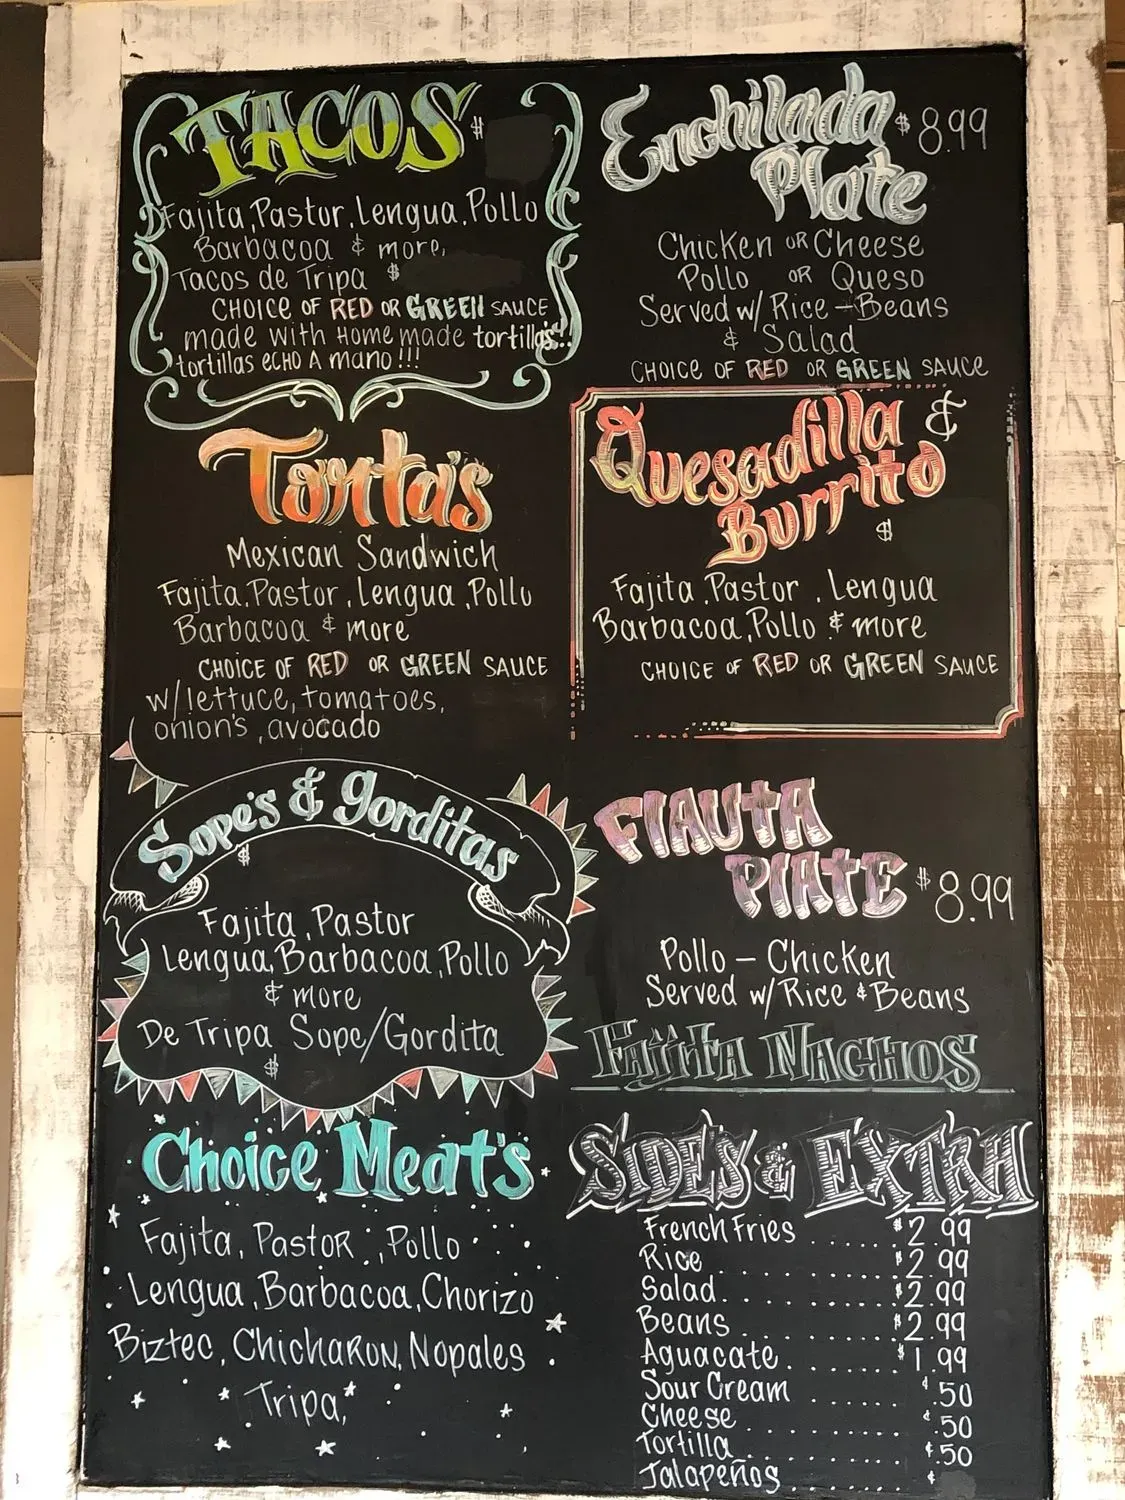 TACOS $
Fajita, Pastor, Lengua, Pollo
Barbacoa & more,
Tacos de Tripa $
CHOICE OF RED OR GREEN SAUCE
made with Home made tortillas!!
tortillas ECHO A mano!!!
Torta's
Mexican Sandwich
Fajita, Pastor, Lengua, Pollo
Barbacoa & more
CHOICE OF RED OR GREEN SAUCE
w/lettuce, tomatoes,
onion's, avocado
Sope's & gorditas
$
Fajita, Pastor
Lengua, Barbacoa, Pollo
& more
De Tripa Sope/Gordita
$
Choice Meat's
Fajita, PastoR, Pollo
Lengua, Barbacoa, Chorizo
Biztec, ChichaRoN, Nopales
Tripa,
Enchilada $8.99
Plate
Chicken OR Cheese
Pollo OR Queso
Served w/ Rice - Beans
& Salad
CHOICE OF RED OR GREEN SAUCE
Quesadilla &
Burrito
$
Fajita, Pastor, Lengua
Barbacoa, Pollo & more
CHOICE OF RED OR GREEN SAUCE
FlAUtA
PlAtE $8.99
Pollo - Chicken
Served w/ Rice & Beans
FAJITA NACHOS
SIDE'S & EXTRA
French Fries ...... $2.99
Rice ............ $2.99
Salad ............ $2.99
Beans ............ $2.99
Aguacate ........ $1.99
Sour Cream ....... ¢.50
Cheese ........... ¢.50
Tortilla ......... ¢.50
Jalapeños ....... ¢